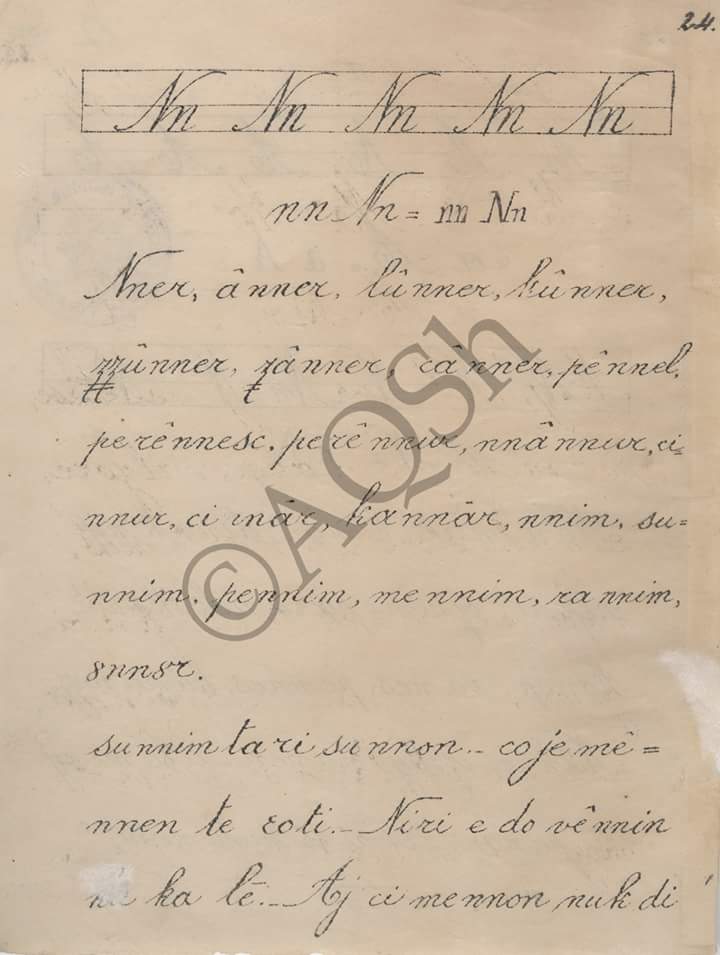 24.
Nn Nn Nn Nn Nn
nn Nn = nn Nn
Nner, ânner, lûnner, kûnner,
zzûnner, zânner, cânner, pênnel,
perênnesc. perênnur, nnânnur, ci=
nnur, ci nnâr, kannâr, nnim. su=
nnim. pennim, mennim, rannim,
sunnim tari sunnon.- co je mê=
nnen te zoti.- Niri e do vênnin
ka lē.- Aj ci mennon, nuk di
©AQSh